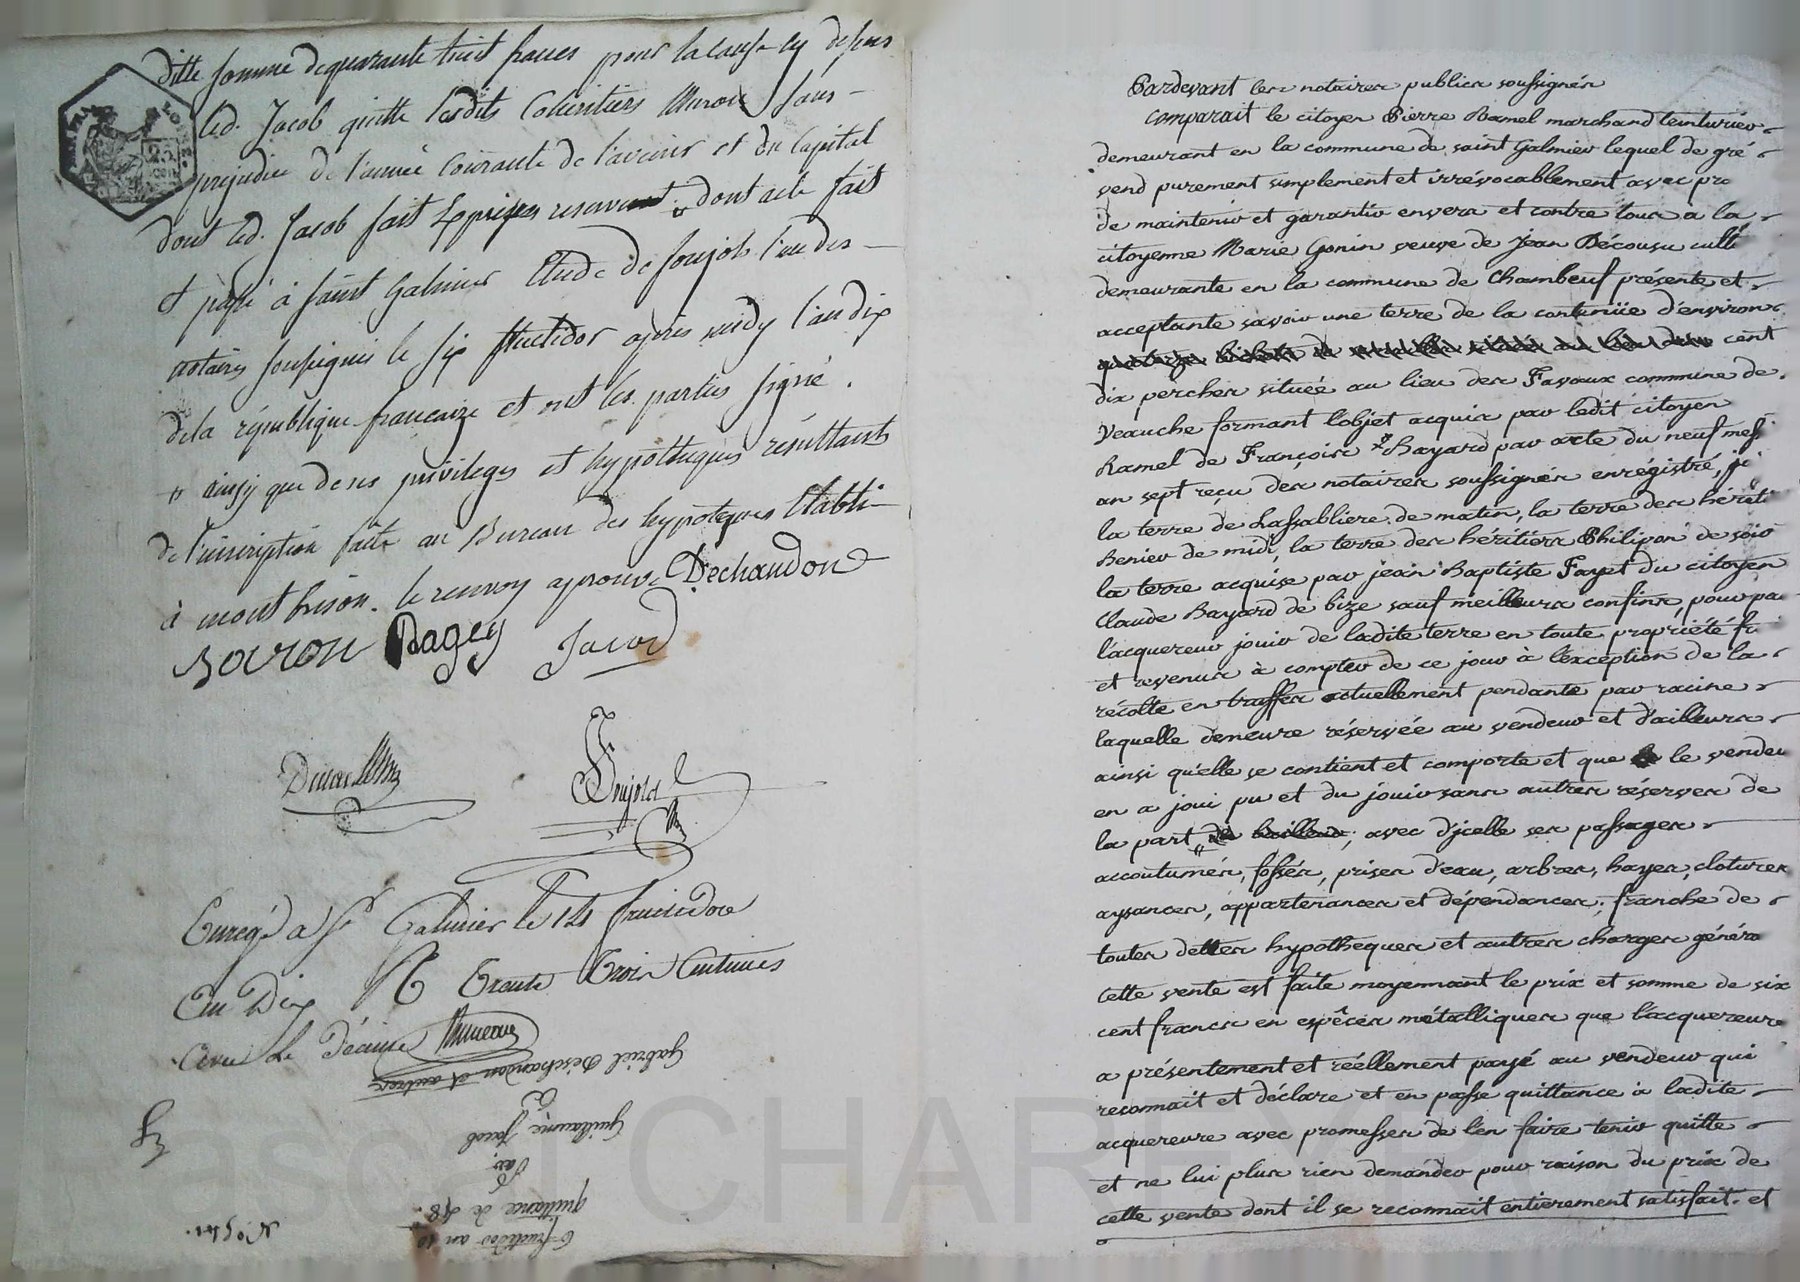 ditte somme de quarante huit francs pour la cause cy dessus
led. Jacob quitte lesdits Cohéritiers sans
préjudice de l'année Courante de l'avenir et du Capital
dont led. Jacob fait Expresses reserves dont acte fait
et passé à saint Galmier Etude de Soujols l'un des
notaires soussignés le six fructidor après midy l'an dix
de la république francaize et ont les parties signé.
ainsy que de ses privileges et hypotheques résultants
de l'inscription faite au Bureau des hypoteques Etabli
à mont brison. le renvoy aprouvé Dechandon
Bagey Jacob
Soujols
Enregé a St Galmier le 14 fructidore
an Dix Trente Trois Centimes
le Décime
Gabriel Deschandon et autres
a
Guillaume Jacob
par
quittance de 48
6 fructidor an 10
Pascal CHAREYRON
Pardevant les notaires publics soussignés
comparait le citoyen Pierre Ramel marchand teinturier
demeurant en la commune de saint Galmier lequel de gré
vend purement simplement et irrévocablement avec pro
de maintenir et garantir envers et contre tous a la
citoyenne Marie Gonin veuve de Jean Décousu culti
demeurante en la commune de Chambeuf présente et
acceptante savoir une terre de la contenüe d'environ
cent
dix perches située au lieu des Favaux commune de
Veauche formant l'objet acquis par ledit citoyen
Ramel de François Bayard par acte du neuf mess
an sept reçu des notaires soussignés enrégistré, jo
la terre de Lassabliere de matin, la terre des hériti
Renier de midi, la terre des héritiers Philipon de soir
la terre acquise par jean Baptiste Fayet du citoyen
Claude Bayard de bize sauf meilleurs confins, pour pa
l'acquereur jouir de ladite terre en toute propriété fr
et revenus à compter de ce jour à l'exception de la
récolte en truffes actuellement pendante par racine
laquelle demeure réservée au vendeur et d'ailleurs
ainsi qu'elle se contient et comporte et que le vendeu
en a joui pu et du jouir sans autres réserves de
la part avec d'jcelle ses passages
accoutumés, fossés, prises d'eau, arbres, hayes, clotures
aysances, appartenances et dépendances; franche de
toutes dettes hypotheques et autres charges généra
cette vente est faite moyennant le prix et somme de six
cent francs en espêces métalliques que l'acquereure
a présentement et réellement payé au vendeur qui
reconnait et déclare et en passe quittance à ladite
acquereure avec promesses de l'en faire tenir quitte
et ne lui plus rien demander pour raison du prix de
cette vente dont il se reconnait entierement satisfait. et